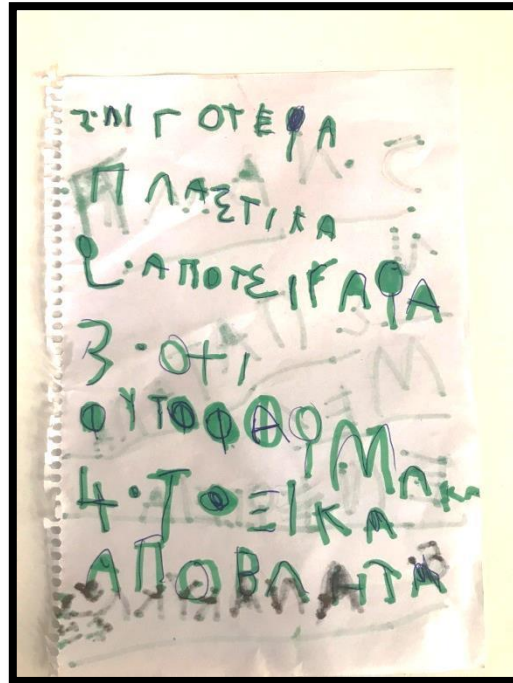 1·ΛΙΓΟΤΕΡΑ
ΠΛΑΣΤΙΚΑ
2·ΑΠΟΤΣΙΓΑΡΑ
3·ΟΧΙ
ΦΥΤΟΦΑΡΜΑΚΑ
4·ΤΟΞΙΚΑ
ΑΠΟΒΛΗΤΑ